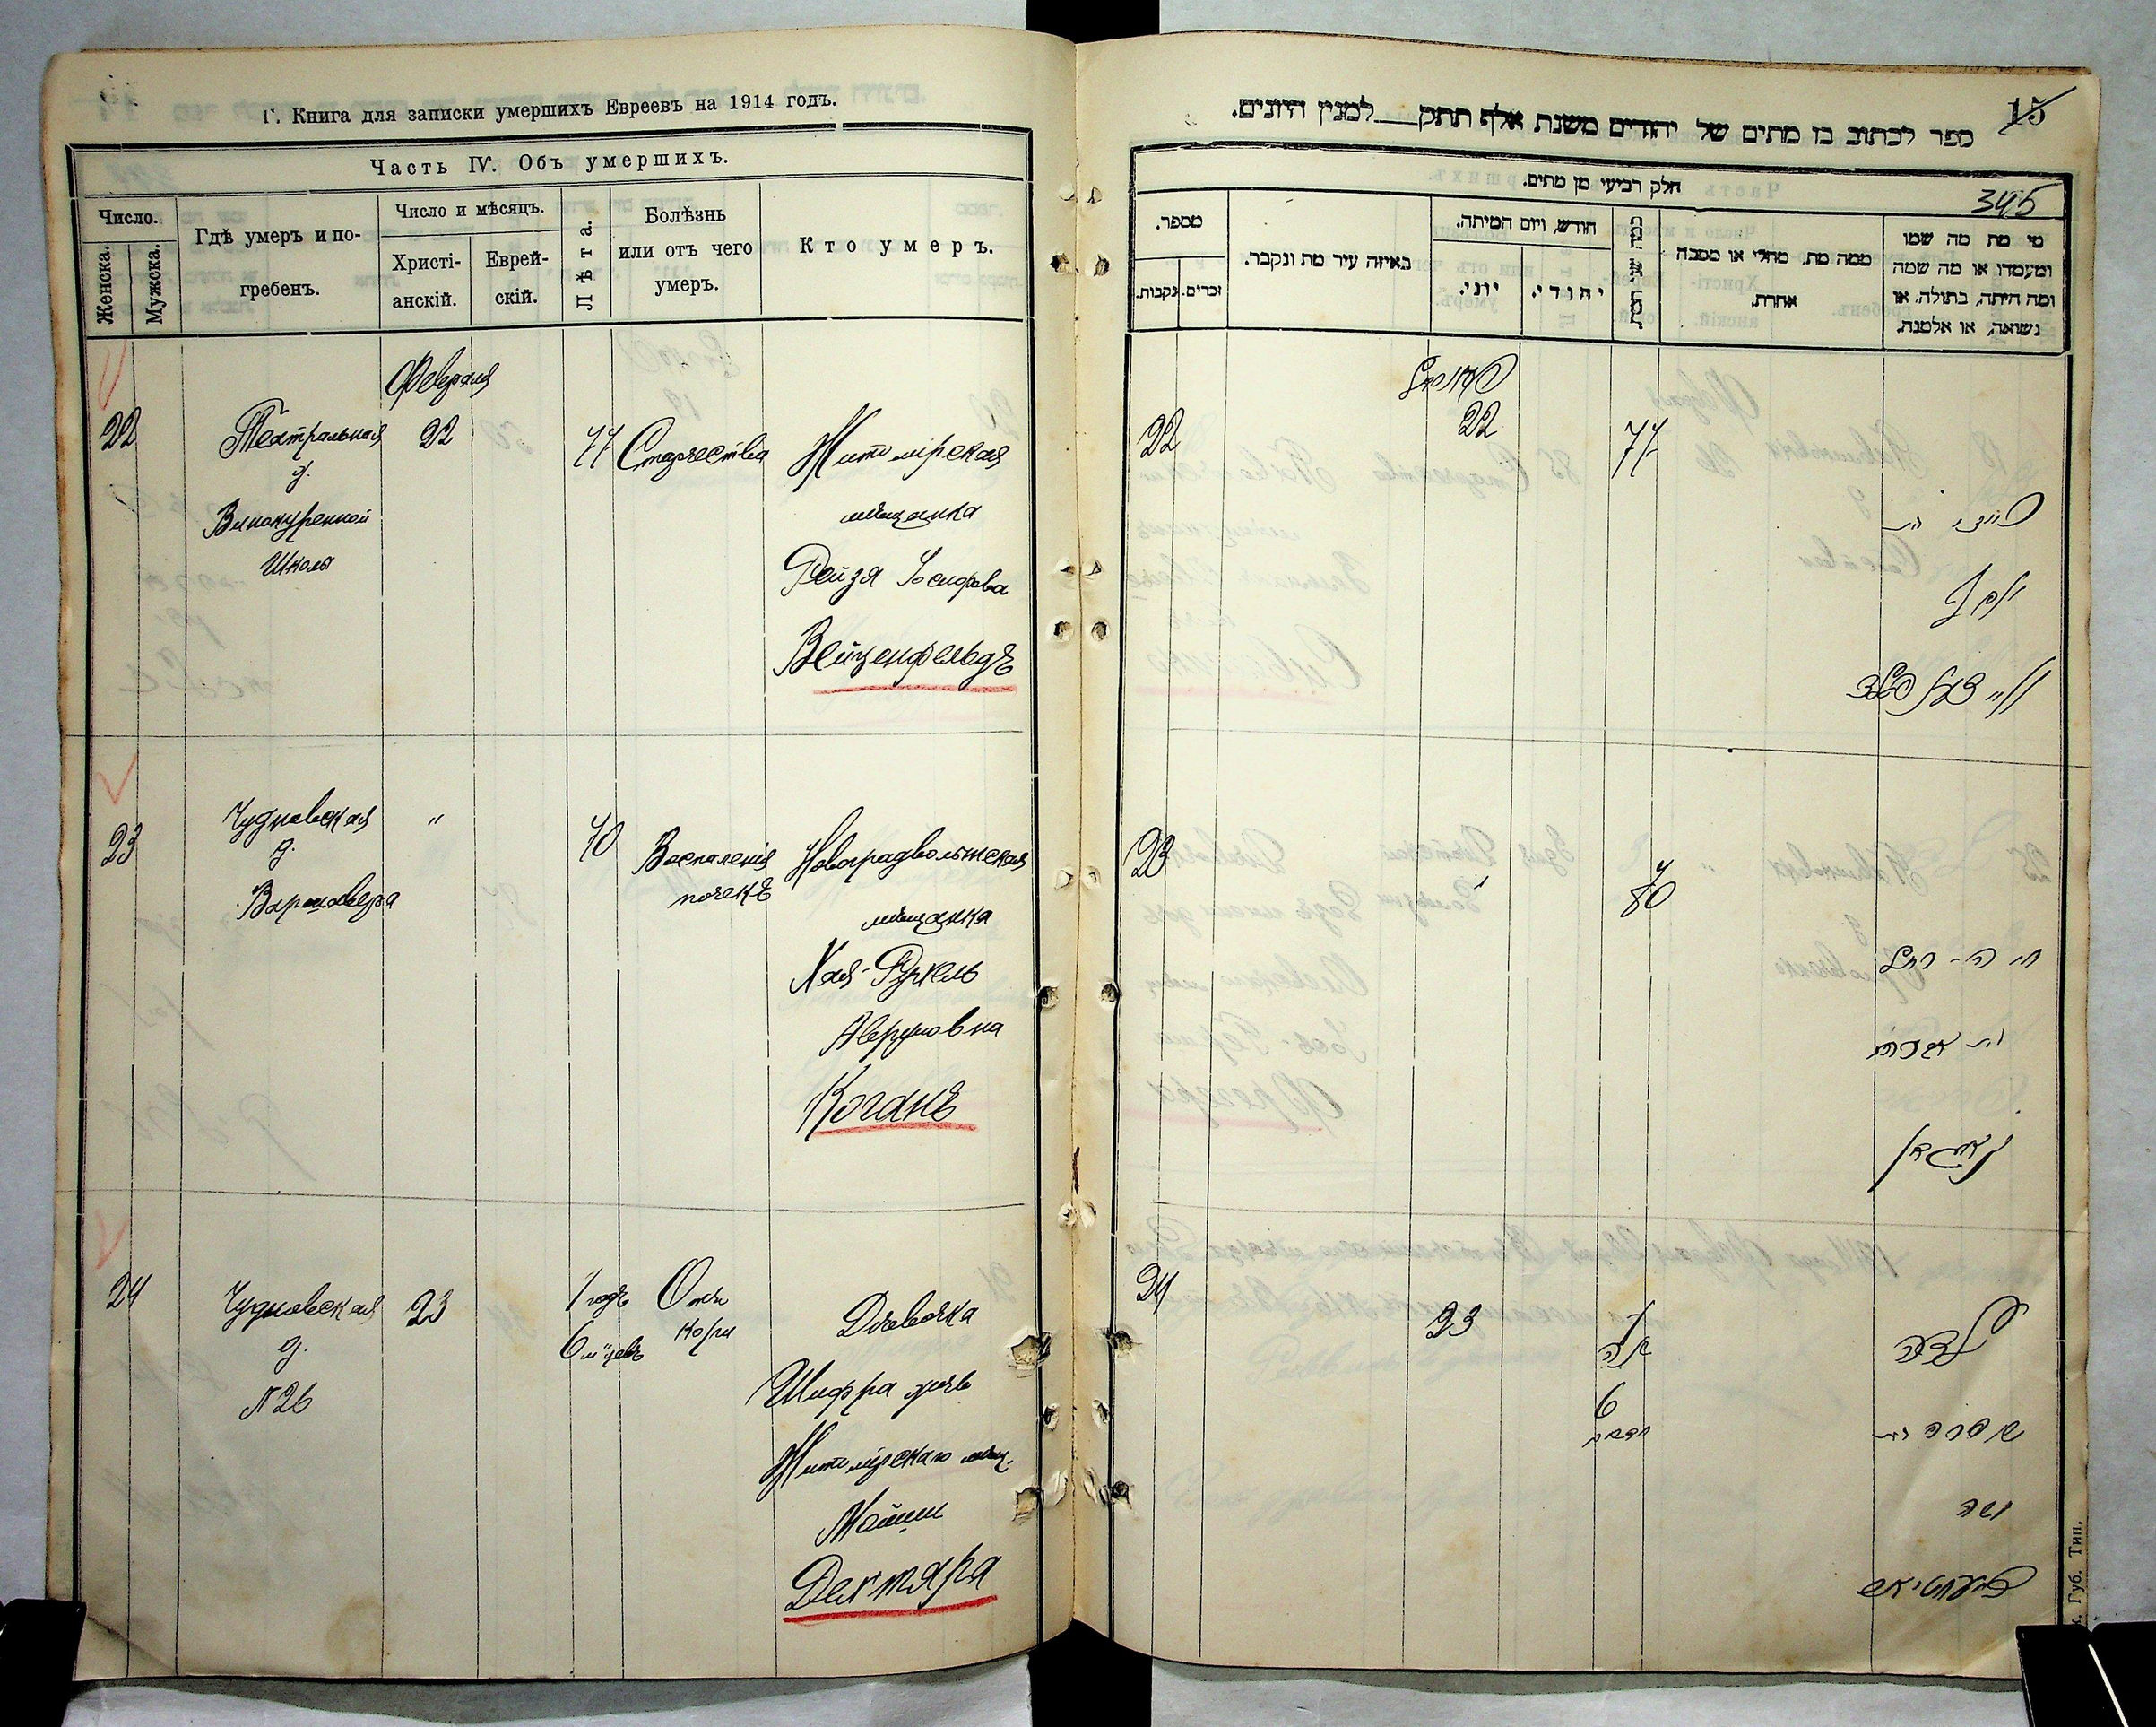 Г. Книга для записки умершихъ Евреевъ на 1914 годъ.
Часть IV. Объ умершихъ.
Число.
Женска.
Мужска.
Гдѣ умеръ и по-
гребенъ.
Число и мѣсяцъ.
Христі-
анскій.
Еврей-
скій.
Лѣта.
Болѣзнь
или отъ чего
умеръ.
Кто умеръ.
Февраля
22
Театральная
д.
Винокуренной
Школы
22
77
Старчества
Житомірская
мѣщанка
Рейзя Іосифова
Вейценфельдъ
23
Чудновская
д.
"
70
Воспаленія
почекъ
Новоградволынская
мѣщанка
Хая-Рухель
Аврумовна
Коганъ
24
Чудновская
д.
№ 26
23
1 годъ
6 м‑цевъ
Отъ
кори
Дѣвочка
Шифра дочь
Житомірскаго мѣщ.
Мойши
Дегтяра
15
ספר לכתוב בו מתים של יהודים משנת אלף תתק למנין היונים.
345
חלק רביעי מן מתים.
מספר.
נקבות.
זכרים.
באיזה עיר מת ונקבר.
חודש, ויום המיתה.
יוני.
יהודי.
ממה מת, מחלי או מסבה
אחרת.
מי מת מה שמו
ומעמדו או מה שמה
ומה היתה, בתולה, או
נשואה, או אלמנה.
22
22
77
רייזע בת
יוסף
ווייצענפעלד
23
"
70
חיה-רחל
בת אברהם
קאגאן
24
23
1
שנה
6
חדשים
ילדה
שפרה בת
משה
דעגטיאר
Губ. Тип.